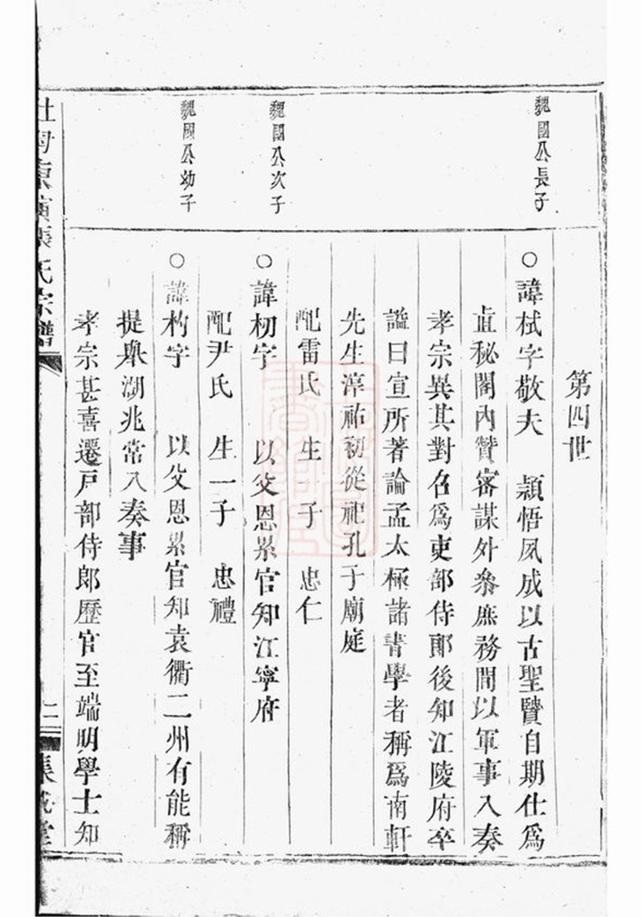 第四世
魏國公長子
○諱栻字敬夫 穎悟夙成以古聖賢自期仕爲
直秘閣內贊審謀外參庶務間以軍事入奏
孝宗異其對召爲吏部侍郎後知江陵府卒
謚曰宣所著論孟太極諸書學者稱爲南軒
先生淳祐初從祀孔子廟庭
配雷氏 生 子 忠仁
魏國公次子
○諱杒字 以父恩累官知江寧府
配尹氏 生一子 忠禮
魏國公幼子
○諱杓字 以父恩累官知袁衢二州有能稱
提舉湖兆常入奏事
孝宗甚喜遷戶部侍郎歷官至端明學士知
氏宗譜